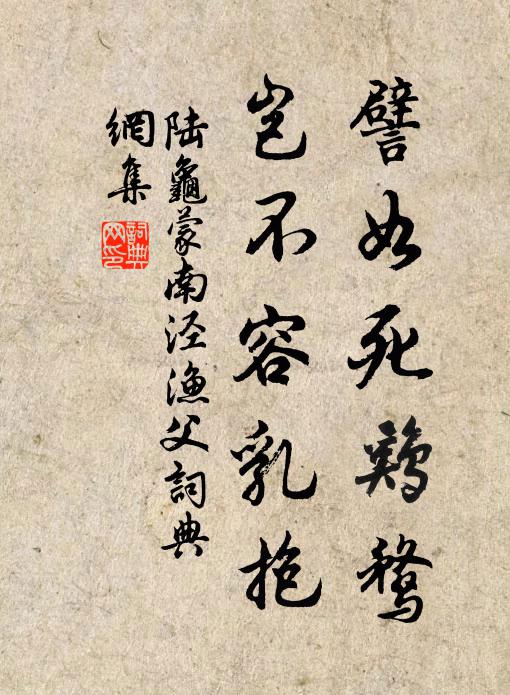 譬如死鷄鶩
豈不容乳抱
陆龜蒙南泾漁父詞典
網集
詞典
网印